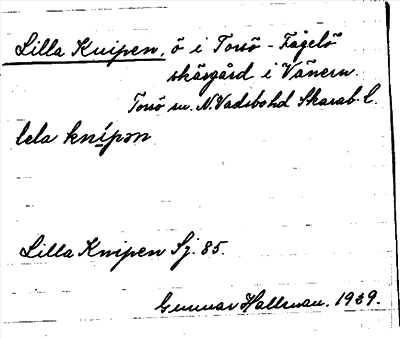 Lilla Knipen, ö i Torsö - Fågelö
skärgård i Vänern.
Torsö sn. N. Vadsbo hd Skarab. l.
lela knípən
Lilla Knipen Sj. 85.
Gunnar Hallman. 1939.